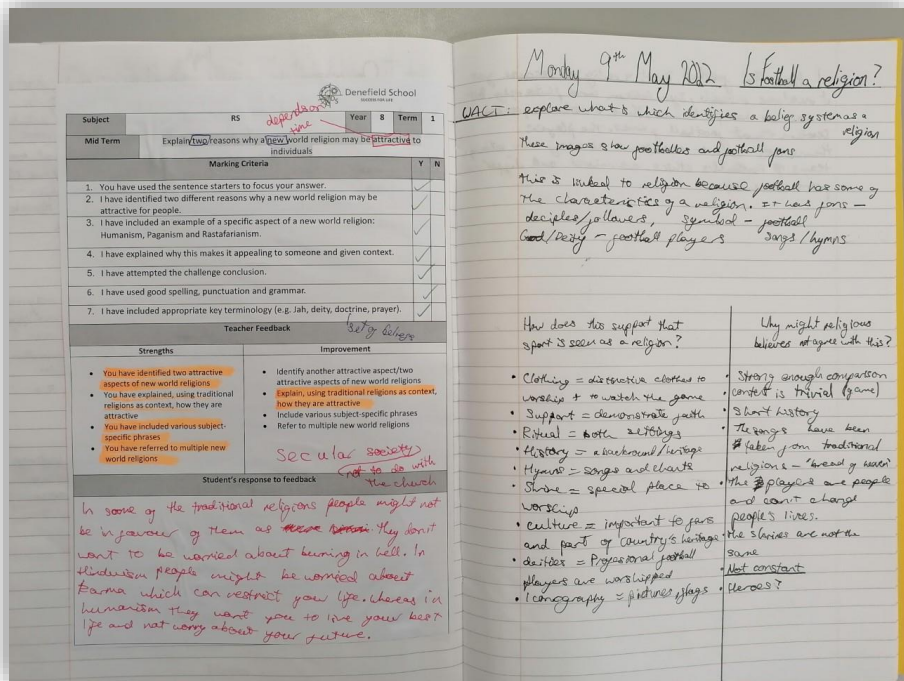 Denefield School
Subject RS Year 8 Term 1
depends on
time
Mid Term Explain two reasons why a new world religion may be attractive to
individuals
Marking Criteria Y N
1. You have used the sentence starters to focus your answer.
2. I have identified two different reasons why a new world religion may be
attractive for people.
3. I have included an example of a specific aspect of a new world religion:
Humanism, Paganism and Rastafarianism.
4. I have explained why this makes it appealing to someone and given context.
5. I have attempted the challenge conclusion.
6. I have used good spelling, punctuation and grammar.
7. I have included appropriate key terminology (e.g. Jah, deity, doctrine, prayer).
set of beliefs
Teacher Feedback
Strengths
• You have identified two attractive
aspects of new world religions
• You have explained, using traditional
religions as context, how they are
attractive
• You have included various subject-
specific phrases
• You have referred to multiple new
world religions
Improvement
• Identify another attractive aspect/two
attractive aspects of new world religions
• Explain, using traditional religions as context,
how they are attractive
• Include various subject-specific phrases
• Refer to multiple new world religions
Secular society
not to do with
the church
Student's response to feedback
In some of the traditional religions people might not
be in favour of them as they don't
want to be worried about burning in hell. In
Hinduism people might be worried about
Karma which can restrict your life. Whereas in
humanism they want you to live your best
life and not worry about your future.
Monday 9th May 2022 Is Football a religion?
WALT: explore what's which identifies a belief system as a
religion
These images show footballers and football fans
this is linked to religion because football has some of
the characteristics of a religion. It has fans –
deciples/followers, symbol – football
God/Deity – football players songs/hymns
How does this support that
sport is seen as a religion?
• Clothing = distinctive clothes to
worship + to watch the game
• Support = demonstrate faith
• Ritual = both settings
• History = a background/heritage
• Hymns = songs and chants
• Shrine = special place to
worship
• culture = important to fans
and part of country's heritage
• deities = Professional football
players are worshipped
• Iconography = pictures/flags
Why might religious
believers not agree with this?
• Strong enough comparison
contest is trivial (game)
• Short history
• The songs have been
taken from traditional
religions – "bread of heaven"
• The players are people
and can't change
people's lives.
• the shrines are not the
same
• Not constant
• Heroes?